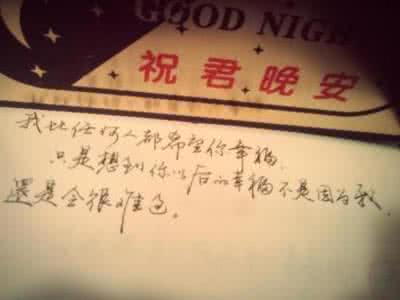 GOOD NIGH
祝君晚安
我比任何人都希望你幸福,
只是想到你以后的幸福不是因为我,
還是会很难过。